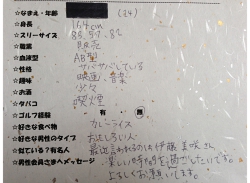 ★なまえ・年齢 (24)
★身長 164cm
★スリーサイズ 88.57.82
★職業 販売
★血液型 AB型
★性格 サバサバしている
★趣味 映画、音楽
★お酒 少々
★タバコ 喫煙
★ゴルフ経験 有 無
★好きな食べ物 カレーライス
★好きな男性のタイプ おもしろい人
★似ている？有名人 最近言われるのは伊藤美咲さん
★男性会員さまへメッセージ 楽しい時間を過ごしたいです。
よろしくお願いします。